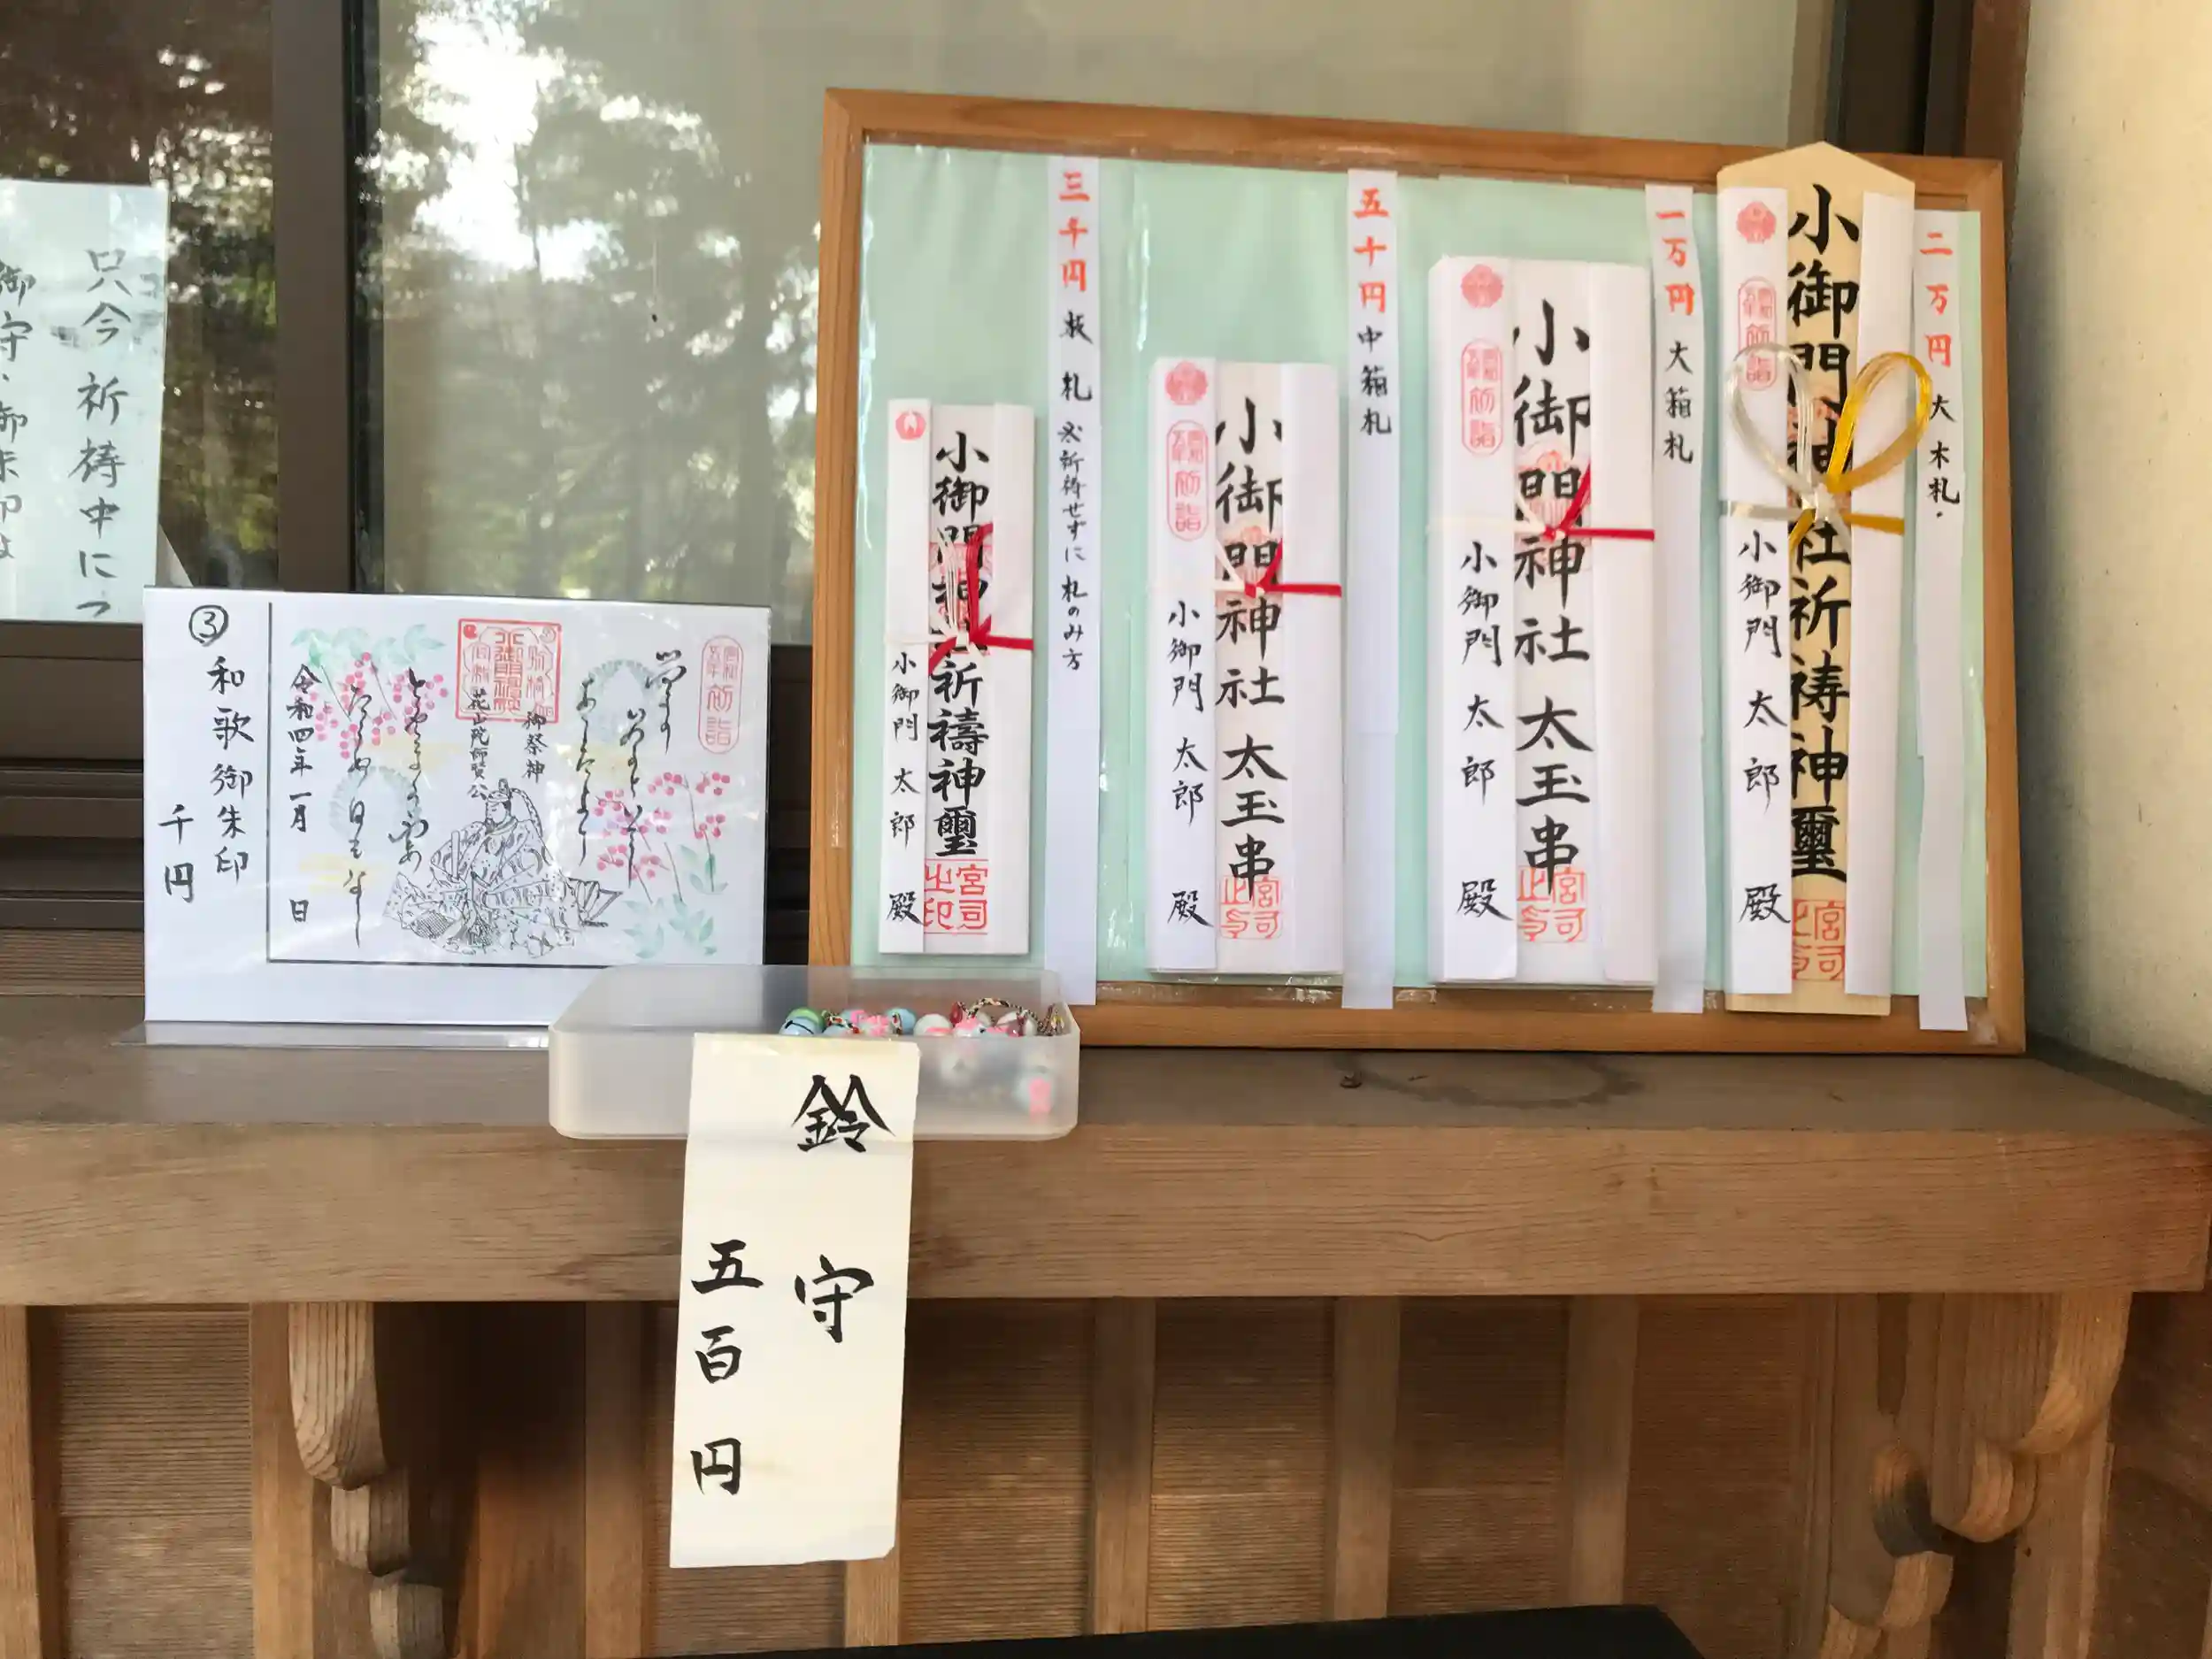 只今祈祷中につ
御守、御朱印は
③
和歌御朱印
千円
初詣
御祭神
花山院師賢公
令和四年一月 日
三千円 板札 ※祈祷せずに札のみ方
小御門神社祈禱神璽
小御門 太郎 殿
宮司之印
五十円 中箱札
小御門神社 太玉串
小御門 太郎 殿
初詣
一万円 大箱札
小御門神社 太玉串
小御門 太郎 殿
初詣
二万円 大木札
小御門神社祈祷神璽
小御門 太郎 殿
鈴守
五百円